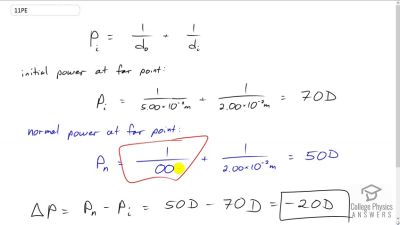 11PE
P_i = 1/d_o + 1/d_i
initial power at far point:
P_i = 1/(5.00 × 10⁻²m) + 1/(2.00 × 10⁻²m) = 70D
normal power at far point:
P_n = 1/∞ + 1/(2.00 × 10⁻²m) = 50D
ΔP = P_n - P_i = 50D - 70D = -20D
College Physics
ANSWERS